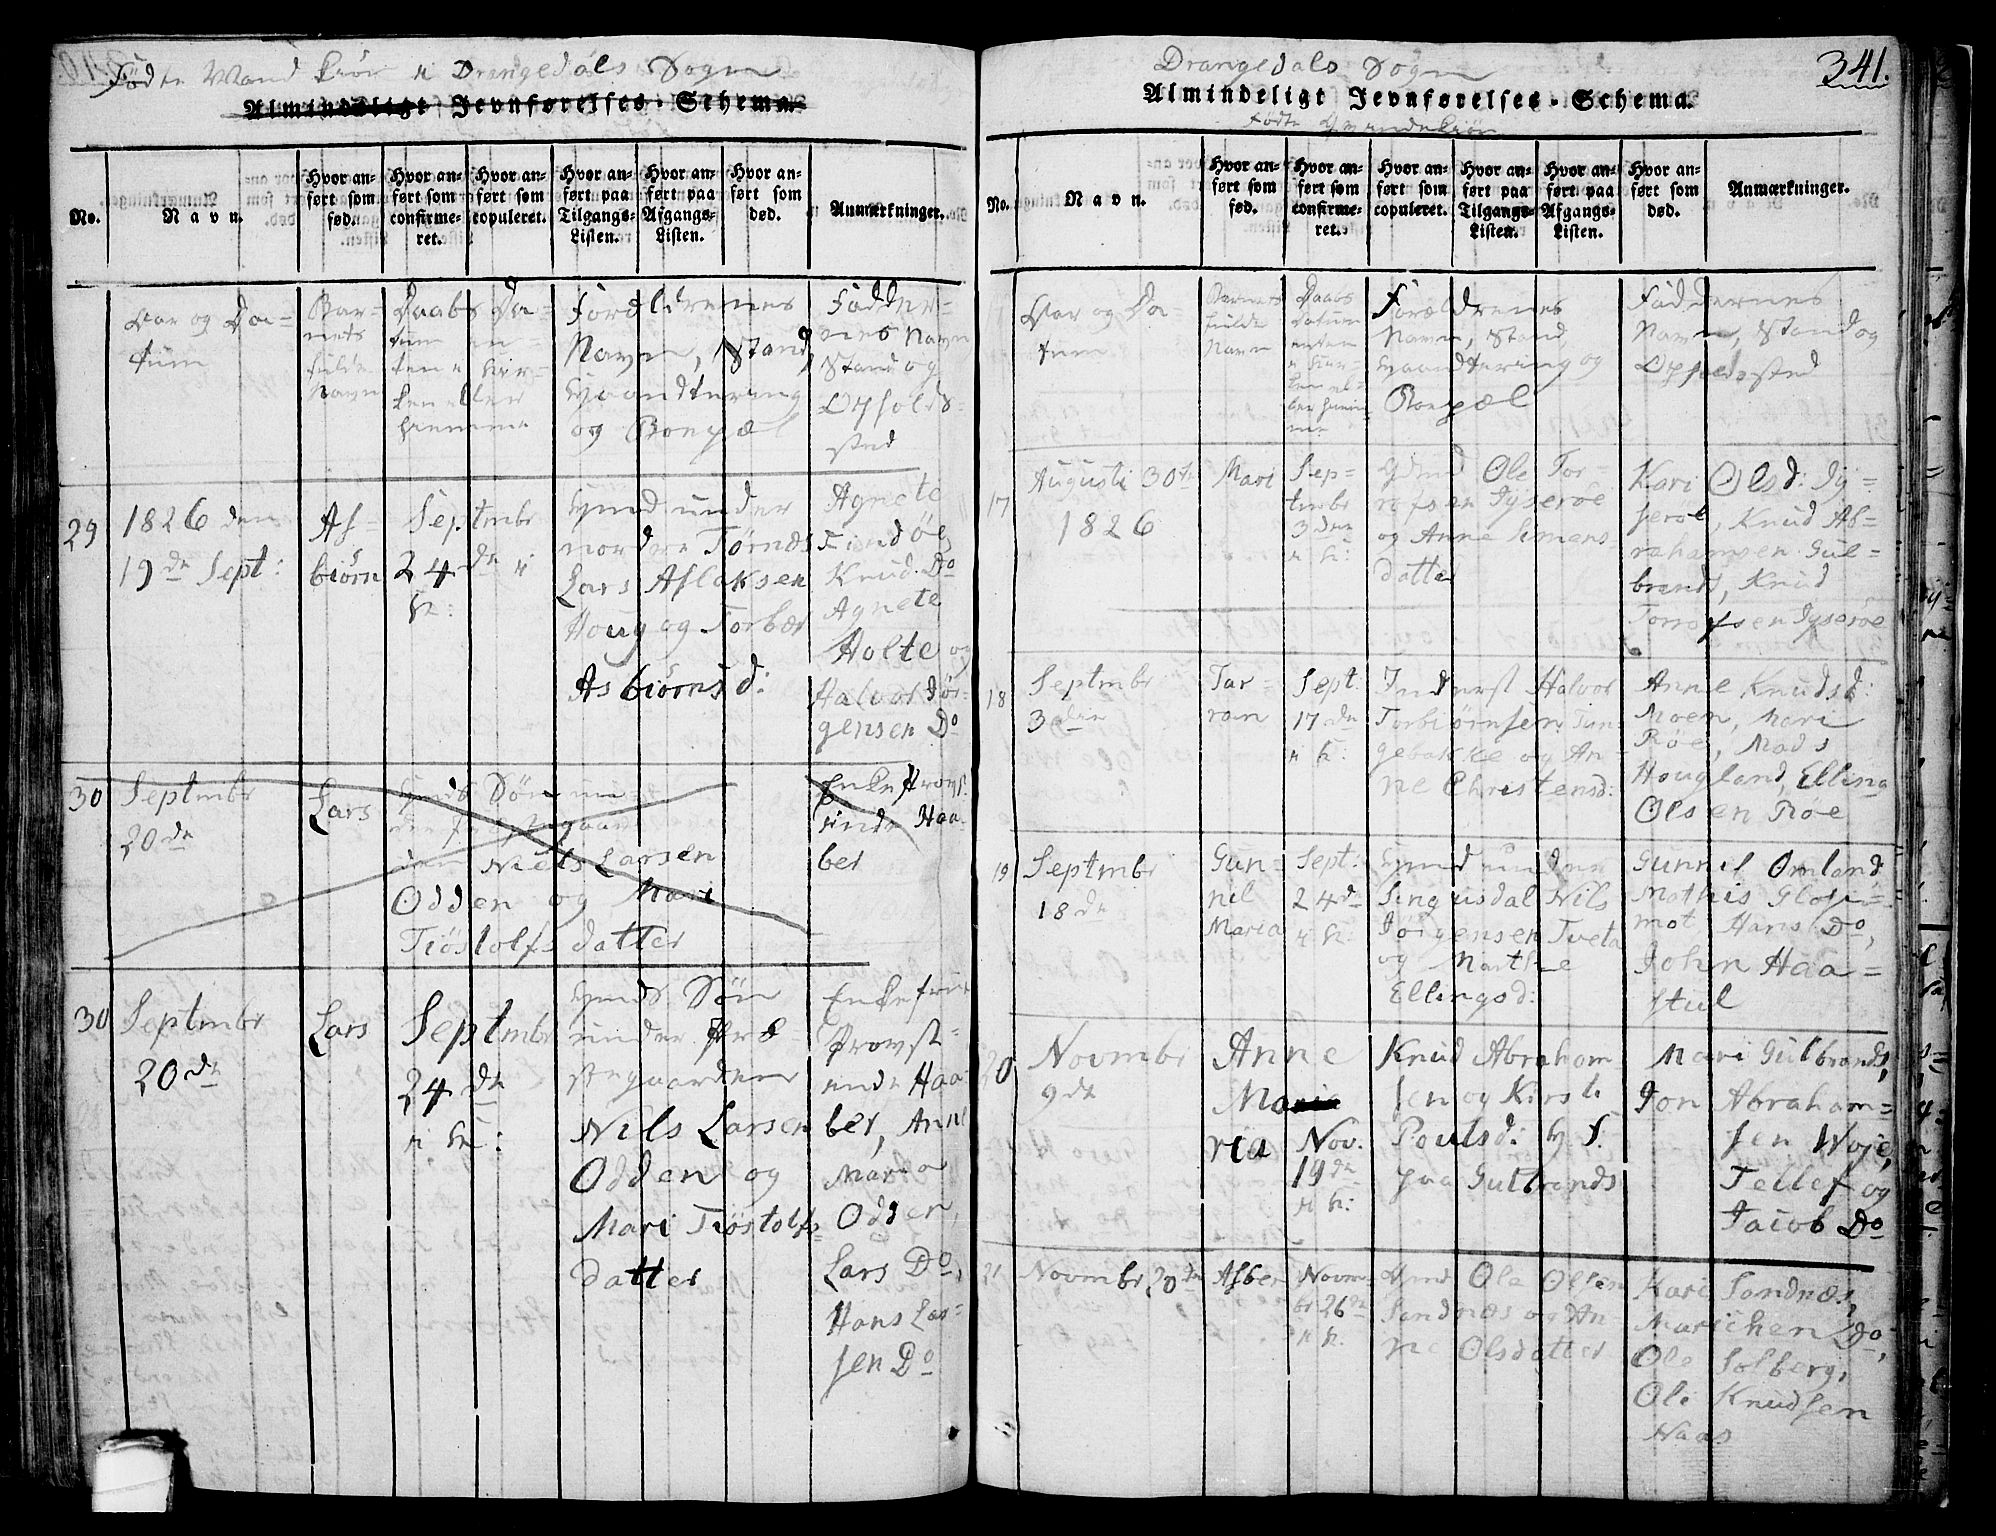 Fødte Mandkiøn i Drangedals Sogn
Almindeligt Jevnførelses-Schema.
No.
Navn.
Hvor an-
ført som
fød.
Hvor an-
ført som
confirme-
ret.
Hvor an-
ført som
copuleret.
Hvor an-
ført paa
Tilgangs-
Listen.
Hvor an-
ført paa
Afgangs-
Listen.
Hvor an-
ført som
død.
Anmærkninger.
Aar og Da=
tum
Bar=
nets
fulde
Navn
Daabs Da=
tum en=
ten i Kir=
ken eller
hiemme
Forældrenes
Navn, Stand,
Haandtering
og Bopæl
Fadder=
nes Navn
Stand og
Opholds=
sted
29
1826 den
19de Sept:
As=
biørn
Septmbr
24de i
K:
Gmd under
nordre Tørnæs
Lars Aslaksen
Houg og Torbør
Asbiørnsd:
Agnete
Findøe
Knud Do
Agnete
Holte og
Halvor Jør=
gensen Do
30
Septmbr
20de
Lars
Gmds Søn un=
der Præstegaar
den Niels Larsen
Odden og Mari
Tiøstolfsdatter
Enke Provst
inde Haa=
ber
30
Septmbr
20de
Lars
Septmbr
24de
i K:
Gmds Søn
under Præ=
stegaarden
Nils Larsen
Odden og
Mari Tiøstolfs=
datter
Enkefrue
Provst=
inde Haa=
ber, Anne
Maria
Odden,
Lars Do,
Hans Lar=
sen Do
341.
Drangedals Sogn
Almindeligt Jevnførelses-Schema.
Fødte Qvindekiøn
No.
Navn.
Hvor an-
ført som
fød.
Hvor an-
ført som
confirme-
ret.
Hvor an-
ført som
copuleret.
Hvor an-
ført paa
Tilgangs-
Listen.
Hvor an-
ført paa
Afgangs-
Listen.
Hvor an-
ført som
død.
Anmærkninger.
Aar og Da=
tum
Barnets
fulde
Navn
Daabs
Datum
enten
i Kir=
ken el=
ler hiem=
me
Forældrenes
Navn, Stand,
Haandtering og
Bopæl
Faddernes
Navn, Stand og
Opholdssted
17
Augusti 30te
1826
Mari
Sep=
tmbr
3den
i K:
Gdmd Ole Tor=
rofsen Gyserøe
og Anne Simens
datter
Kari Olsd: Gy=
serøe, Knud Ab=
rahamsen Gul=
brands, Knud
Torrofsen Gyserøe
18
Septmbr
3den
Tar=
ran
Sept:
17de
i K:
Inderst Halvor
Torbiørnsen Tan
gebakke og An
ne Christensd:
Anne Knudsd:
Moen, Mari
Røe, Mads
Hougland, Elling
Olsen Røe
19
Septmbr
18de
Gun=
nil
Maria
Sept:
24de
i K:
Gmd under
Singusdal Nils
Jørgensen Tveta
og Marthe
Ellingsd:
Gunnil Omland
Mathis Glosi=
mot, Hans Do,
John Haa=
stul
20
Novmbr
9de
Anne
Ma
ria
Nov.
19de
i K:
Knud Abraham
sen og Kirsti
Poulsd: H. F.
paa Gulbrands
Mari Gulbrands,
Jon Abraham=
sen Woje,
Tellef og
Jacob Do
21
Novmbr 20de
Asber
Novm
br 26de
i K:
Gmd Ole Olsen
Sandnæs og An
ne Olsdatter
Kari Sandnæs,
Marichen Do,
Ole Solberg,
Ole Knudsen
Naas